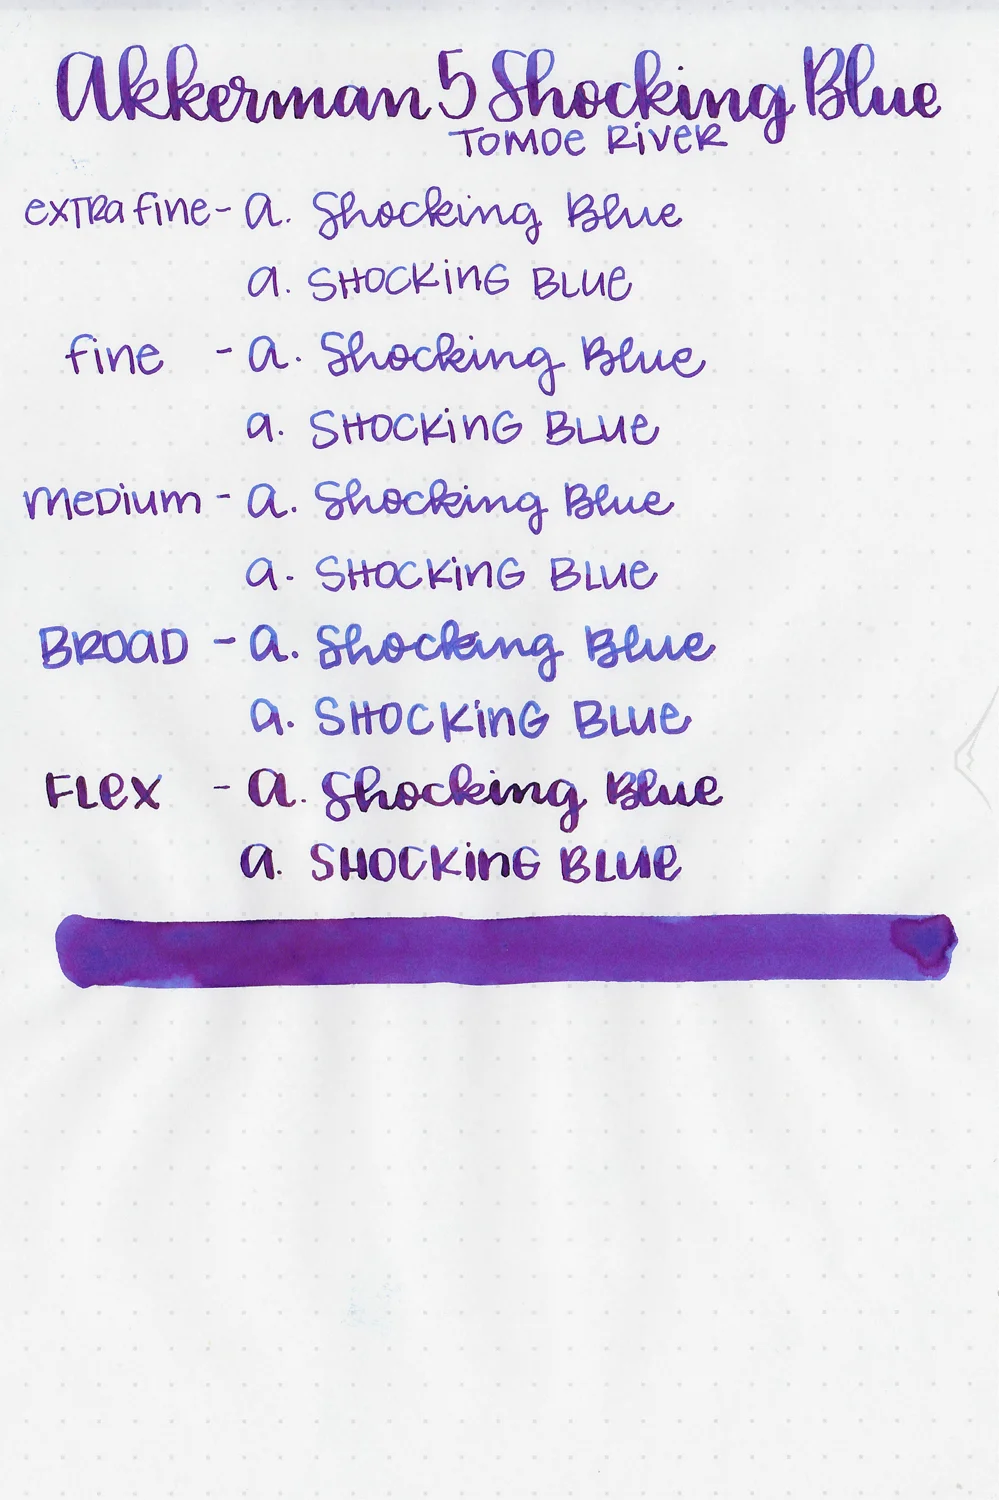 Akkerman 5 Shocking Blue
TOMOE RIVER
exTRa fine - a. Shocking Blue
a. SHOCKiNG BLUe
fine - a. Shocking Blue
a. SHOCKiNG BLUe
MeDium - a. Shocking Blue
a. SHOCKiNG BLUe
BROaD - a. Shocking Blue
a. SHOCKiNG BLUe
FLex - a. Shocking Blue
a. SHOCKiNG BLUe